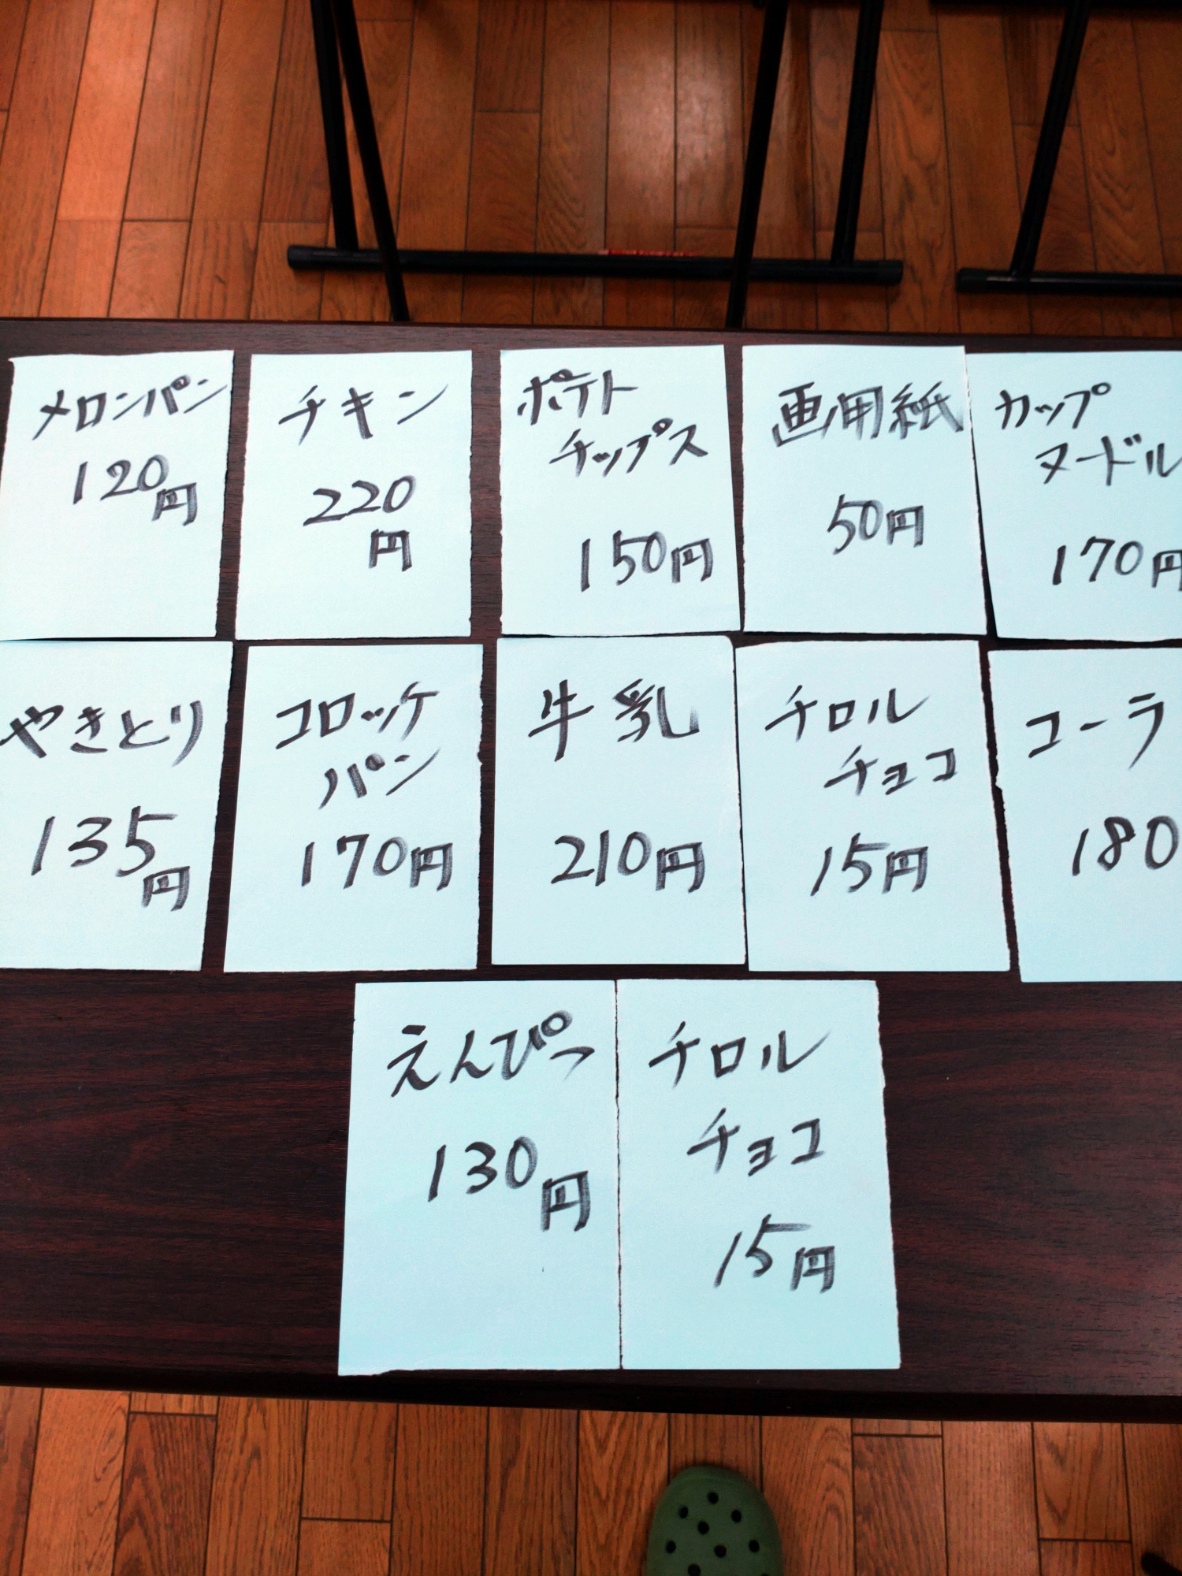 メロンパン
120円
チキン
220
円
ポテト
チップス
150円
画用紙
50円
カップ
ヌードル
170円
やきとり
135円
コロッケ
パン
170円
牛乳
210円
チロル
チョコ
15円
コーラ
180
えんぴつ
130円
チロル
チョコ
15円